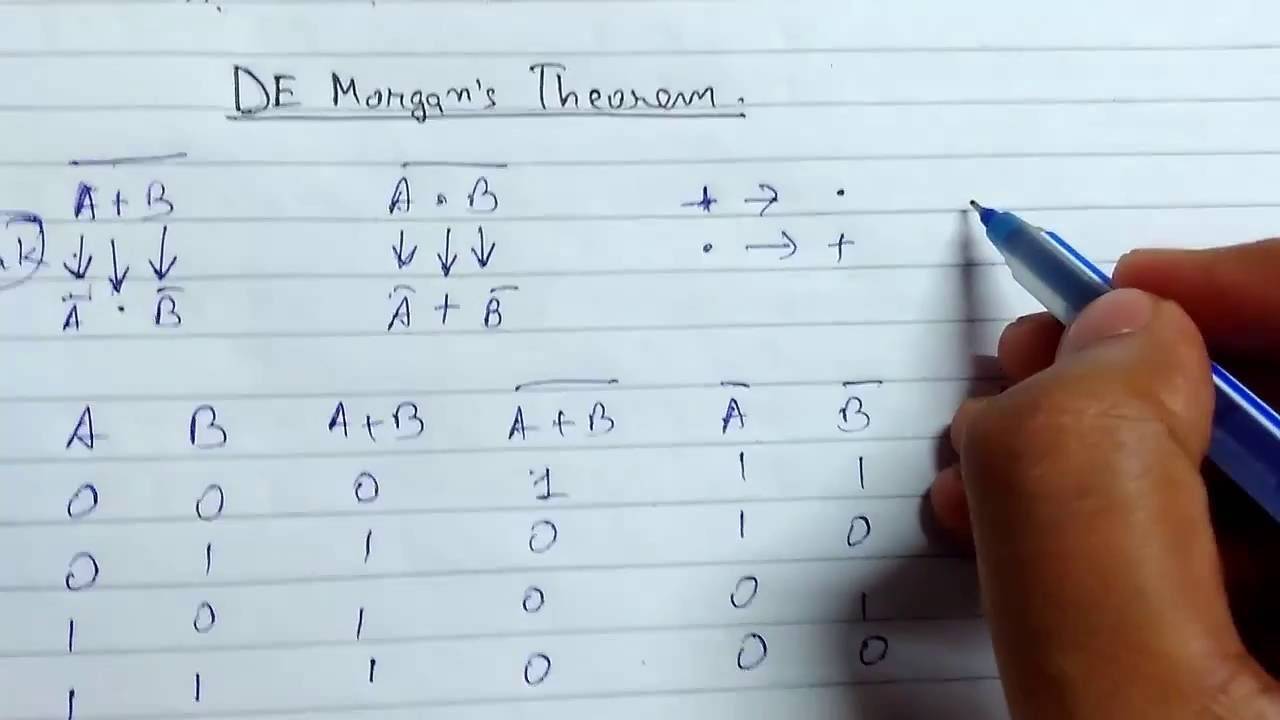 DE Morgan's Theorem.
A̅ ̅+̅ ̅B̅ A̅ ̅.̅ ̅B̅ + → .
↓ ↓ ↓ ↓ ↓ ↓ . → +
A̅ . B̅ A̅ + B̅
A B A+B A̅ ̅+̅ ̅B̅ A̅ B̅
0 0 0 1 1 1
0 1 1 0 1 0
1 0 1 0 0 1
1 1 1 0 0 0